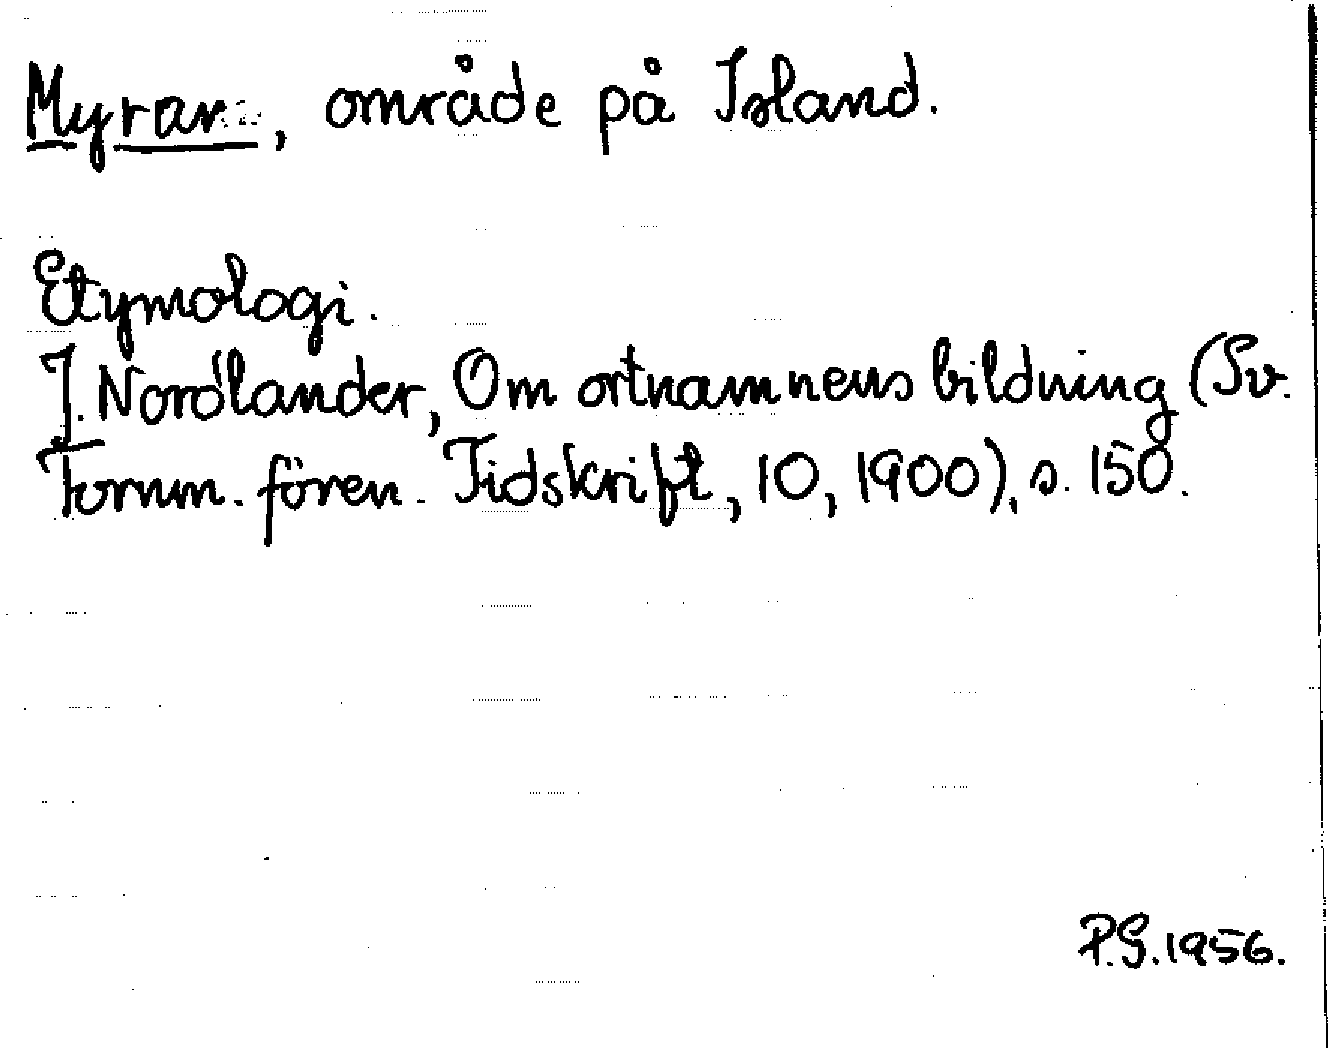 Myrar, område på Island.
Etymologi.
J. Nordlander, Om ortnamnens bildning (Sv.
Fornm. fören. Tidskrift, 10, 1900), s. 150.
P.G. 1956.